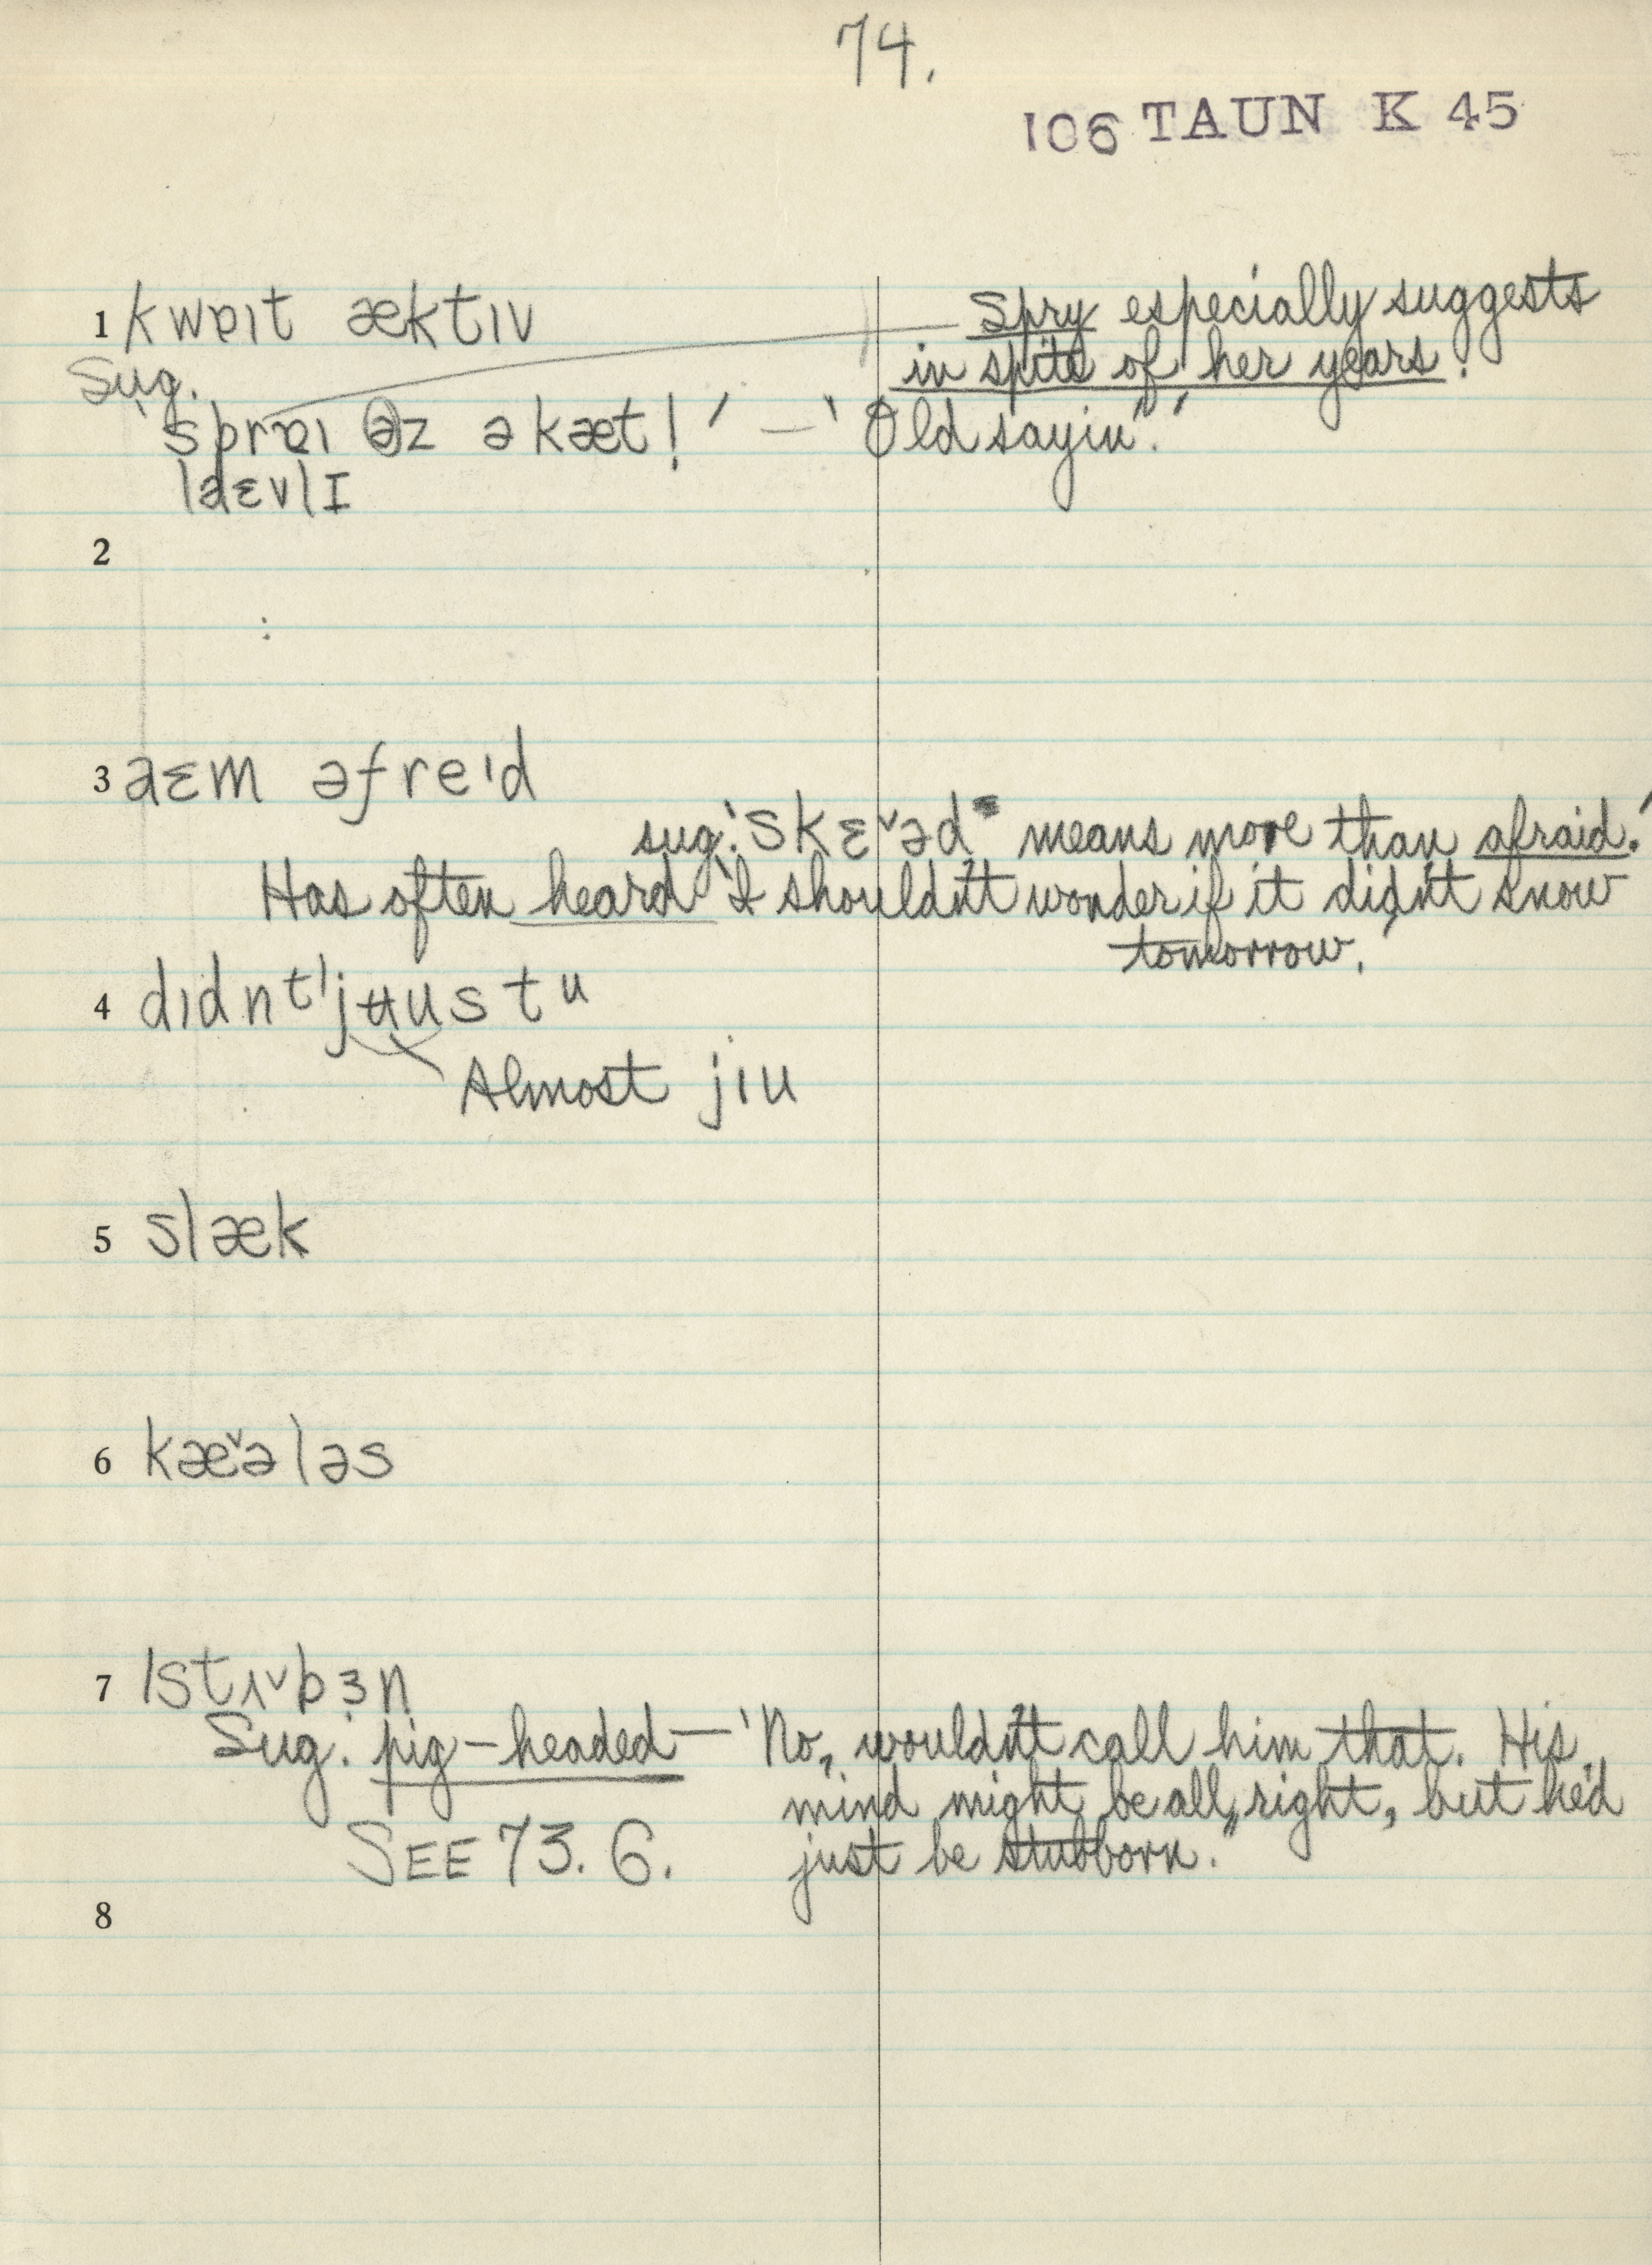 74.
106 TAUN K 45
1 kwɐıt æktıv
Spry especially suggests
in spite of her years.'
Sug.
'sprɐı əz ə kæt!' — 'Old sayin'.'
laɛvlI
2
3 aɛm əfreıd
sug. 'skɛ˅əd" means more than afraid.'
Has often heard 'I shouldn't wonder if it didn't snow
tomorrow.'
4 dıdnt'jʉustu
Almost jıu
5 slæk
6 kæ˅ələs
7 ıstʌ˅bɜn
Sug. pig-headed — 'No, wouldn't call him that. His
mind might be all right, but he'd
SEE 73. 6.
just be stubborn."
8